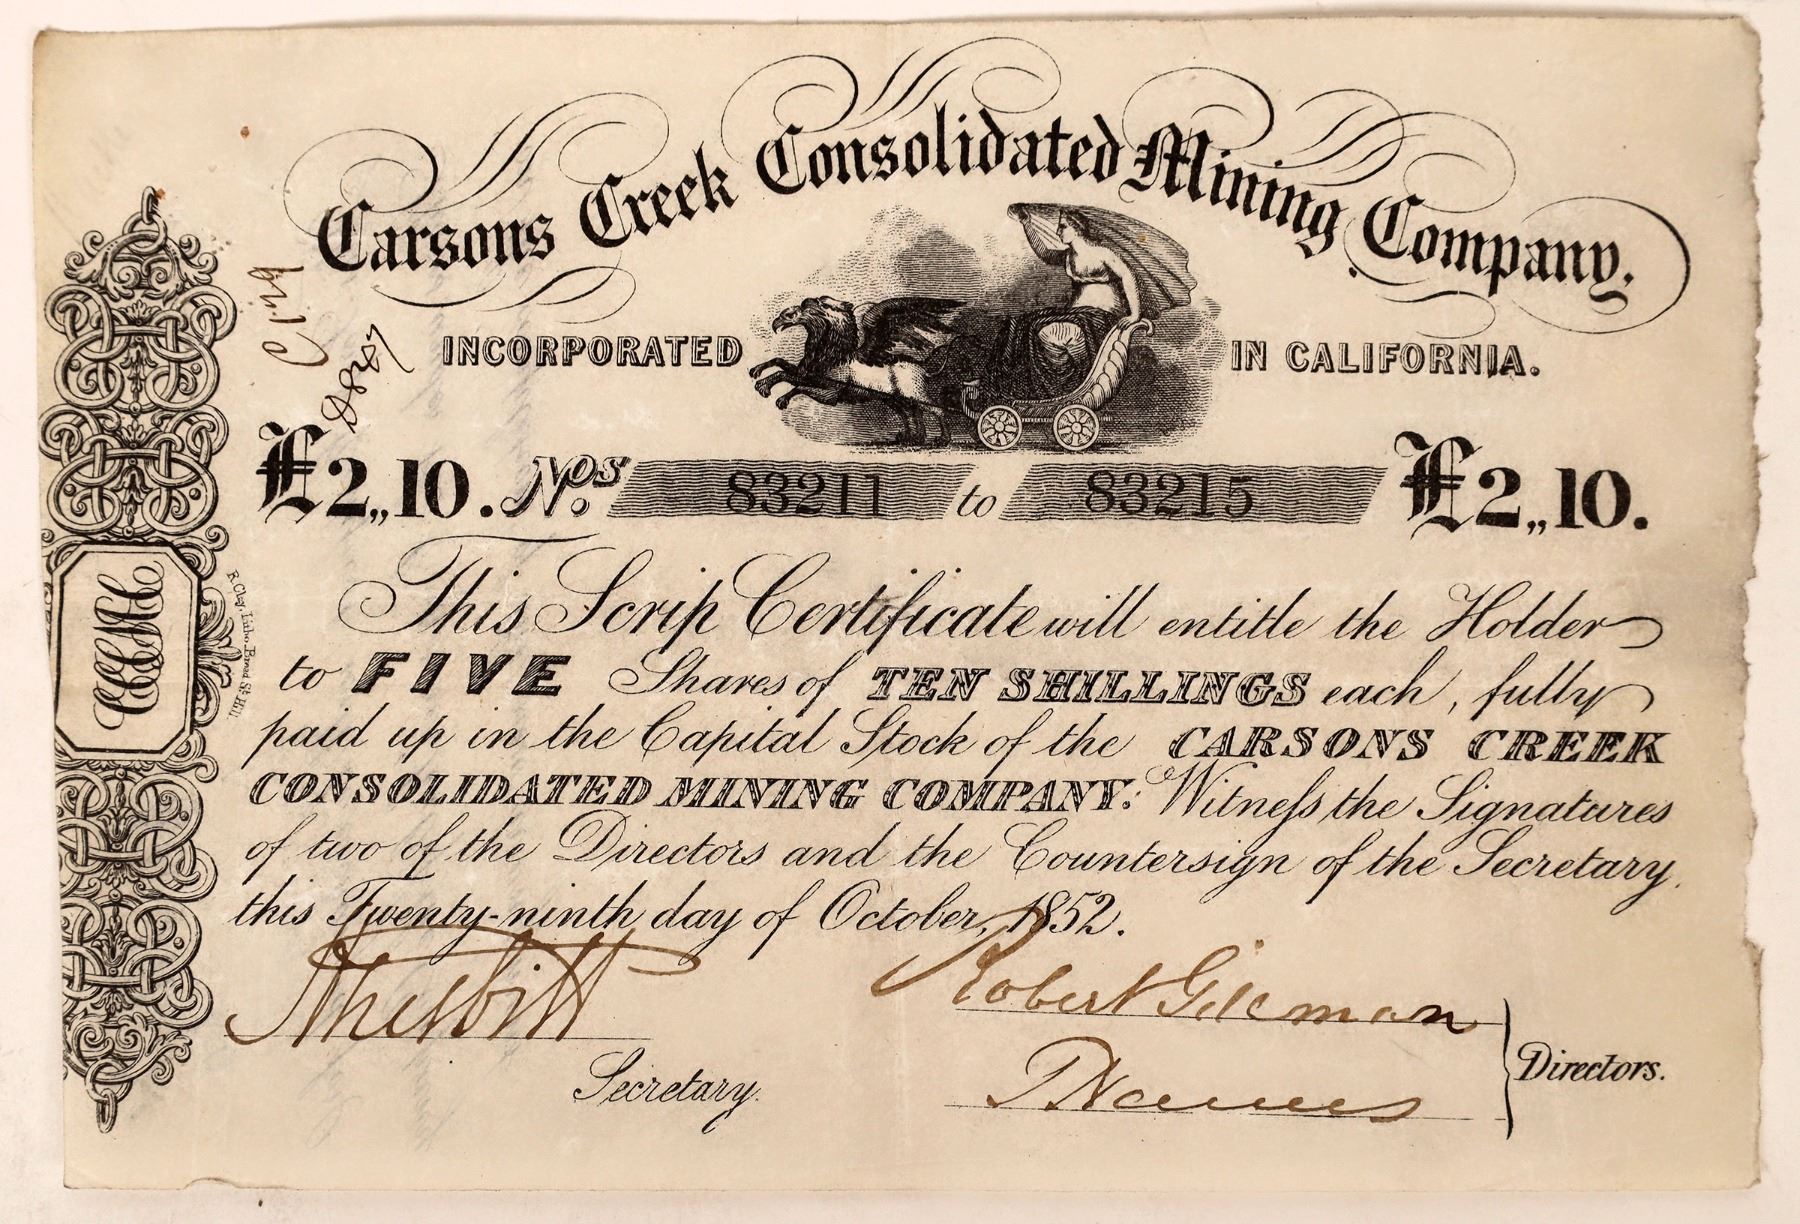 Carsons Creek Consolidated Mining Company.
INCORPORATED IN CALIFORNIA.
£2,,10. Nos. 83211 to 83215 £2,,10.
This Scrip Certificate will entitle the Holder
to FIVE Shares of TEN SHILLINGS each, fully
paid up in the Capital Stock of the CARSONS CREEK
CONSOLIDATED MINING COMPANY: Witneſs the Signatures
of two of the Directors and the Countersign of the Secretary,
this Twenty-ninth day of October, 1852.
Robert
Secretary.
Directors.
CCCMC
R. Clay, Litho. Bread St. Hill